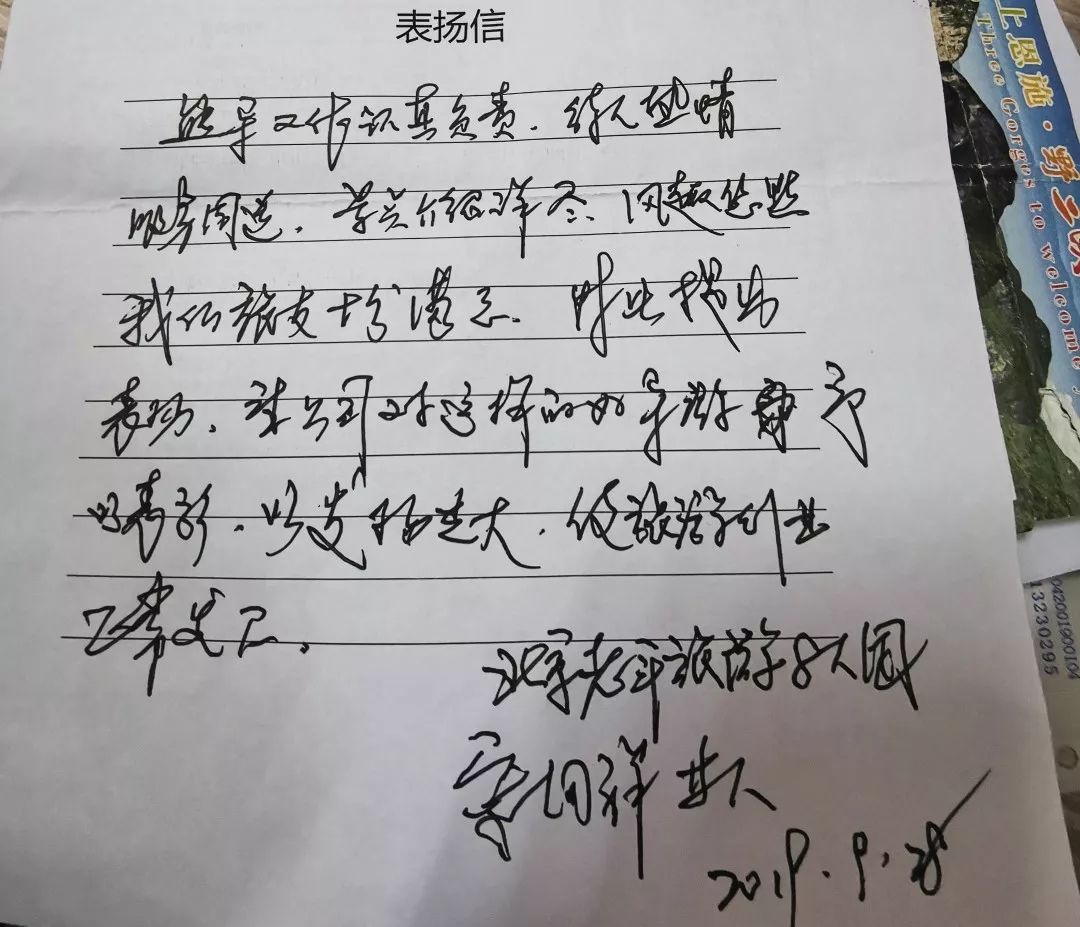 表扬信
熊导工作认真负责，待人热情
服务周到，景点介绍详尽、风趣
我们旅友十分满意。对此提出
表扬，请公司对这样的好导游予
以表彰，以发扬光大，使旅游事业
发展。
北京老年旅游学8人团
祥 等人
2019.9.28
上恩施·野三峡
Three Gorges to welcome
0420019000104
13230295